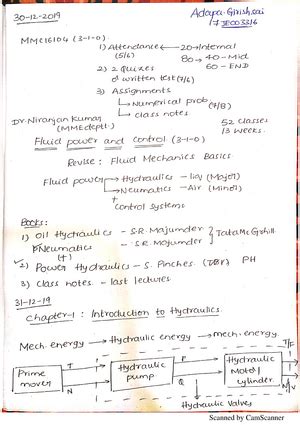 30-12-2019
Adapa. Girish.sai
17JE003316
MMC16104 (3-1-0)
1) Attendance ← 20→Internal
(5/6) 80→ 40-Mid
2) 2 Quizes 60 - END
written test (7/6)
3) Assignments
Numerical prob (7/8)
class notes
Dr. Niranjan Kumar
(MME deptt.)
52 classes
13 weeks.
Fluid power and control (3-1-0)
Revise: Fluid Mechanics Basics
Fluid power → Hydraulics - liq (Major)
→ Neumatics - Air (Minor)
+
control systems
Books:
1) Oil Hydraulics - S.R. Majumder } Tata McGrhill
Pneumatics - S.R. Majumder
(+)
2) Power Hydraulics - S. Pinches. PH
3) Class notes - last lectures
31-12-19
Chapter-1: Introduction to Hydraulics.
Mech. energy → Hydraulic energy → mech. energy.
T/F
Prime mover
T
N
Hydraulic pump.
P
Q
Hydraulic Motor/ cylinder.
N/V
Hydraulic Valves
Scanned by CamScanner